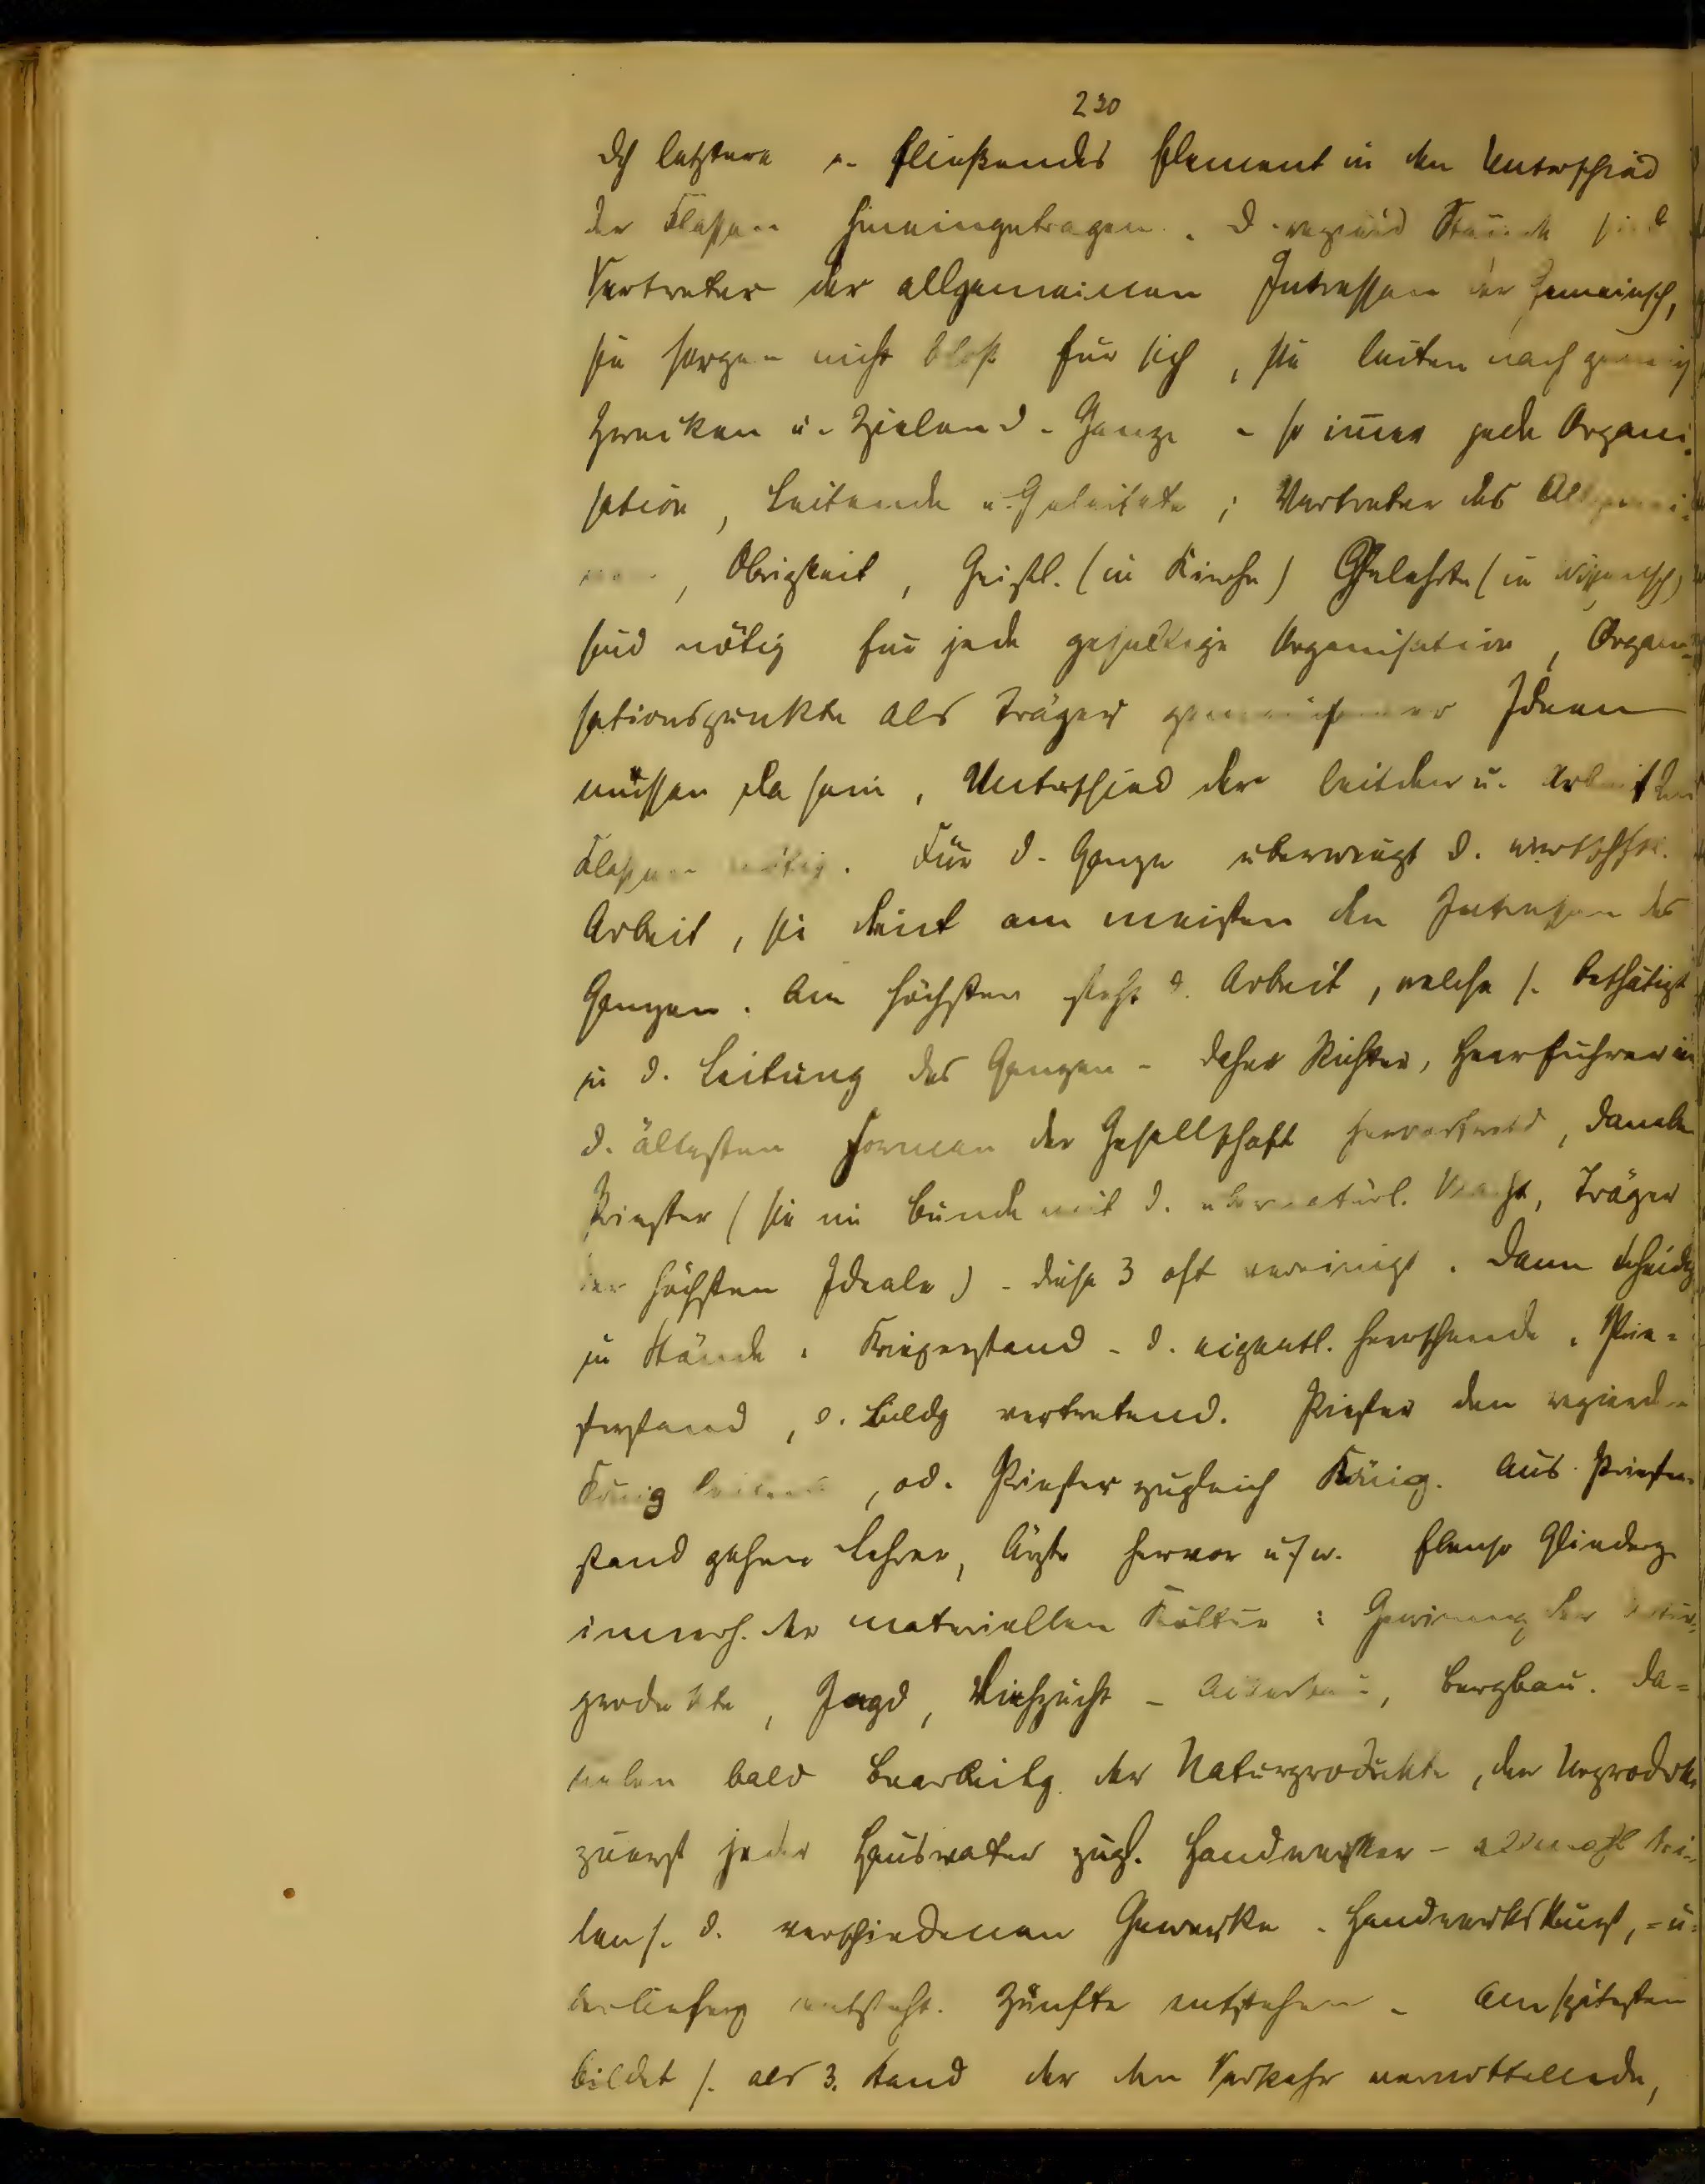 230
Dch letztere e. fließendes Element in den Unterschied
der Klassen hineingetragen. D. regierd Stände sind
Vertreter der allgemeinen Interessen der Gemeinsch,
sie sorgen nicht bloß für sich, sie leiten nach
Zwecken u. Zielen d. Ganze - so immer jede Organi-
sation, Leitende u. Geleitete; Vertreter des Allgemei-
nen, Obrigkeit, Geistl. (in Kirche) Gelehrte (in Wissensch)
sind nötig für jede Organisation, Organi-
sationspunkte als Träger gemeinsamer Ideen
müssen da sein, Unterschied der leitden u. arbeitden
Klassen nötig. Für d. Ganze überwiegt d. wirtschftl.
Arbeit, sie dient am meisten den Interessen des
Ganzen. Am höchsten steht d. Arbeit, welche s. bethätigt
in d. Leitung des Ganzen - daher Richter, Heerführer in
d. ältesten Formen der Gesellschaft hervortretd, daneben
Priester (sie im Bunde mit d. übernatürl. Macht, Träger
der höchsten Ideale) - diese 3 oft vereinigt. Dann Scheidg
in Stände. Kriegerstand - d. eigentl. herrschende. Prie-
sterstand, d. Bildg vertretend. Priester den regierden
König leitend, od. Priester zugleich König. Aus Priester-
stand gehen Lehrer, Ärzte hervor usw. Ebenso Gliederg
innerh. der materiellen Kultur: Gewinnung der Natur-
produkte, Jagd, Viehzucht - Ackerbau, Bergbau. Da-
neben bald Bearbeitg der Naturprodukte, der Urprodukte
zuerst jeder Hausvater zugl. Handwerker - allmähl tei-
len s. d. verschiedenen Gewerke. Handwerkskunst, -ü-
berlieferg entsteht. Zünfte entstehen - Am spätesten
bildet s. als 3. Stand der den Verkehr vermittelnde,